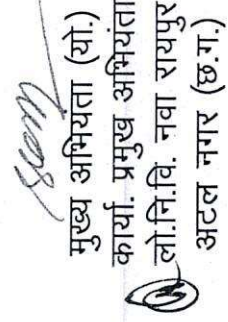 मुख्य अभियता (यो.)
कार्या. प्रमुख अभियंता
लो.नि.वि. नवा रायपुर
अटल नगर (छ.ग.)